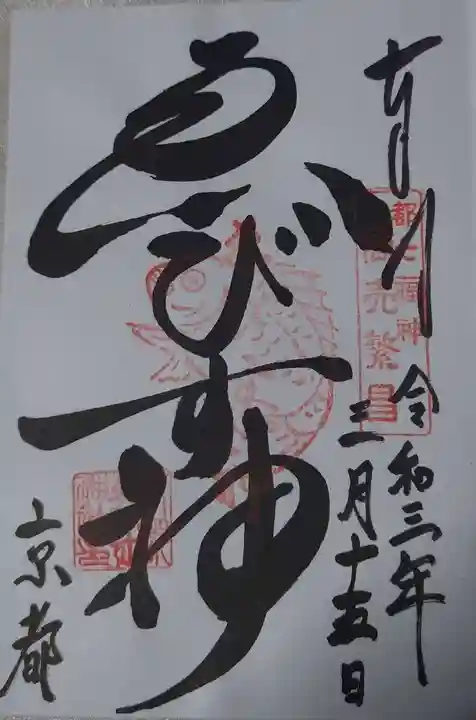 奉拝
令和三年
三月十五日
都七福神
商売繁昌
ゑびす神
京都